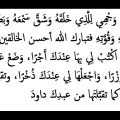 وَجْهِيَ لِلَّذِي خَلَقَهُ وَشَقَّ سَمْعَهُ وَبَصَ
وَقُوَّتِهِ فتبارك الله أحسن الخالقين
اكْتُبْ لِي بِهَا عِنْدَكَ أَجْرًا، وَضَعْ عَ
وِزْرًا، وَاجْعَلْهَا لِي عِنْدَكَ ذُخْرًا، وَتَقَ
كما تقبّلتها من عبدِكَ داودَ